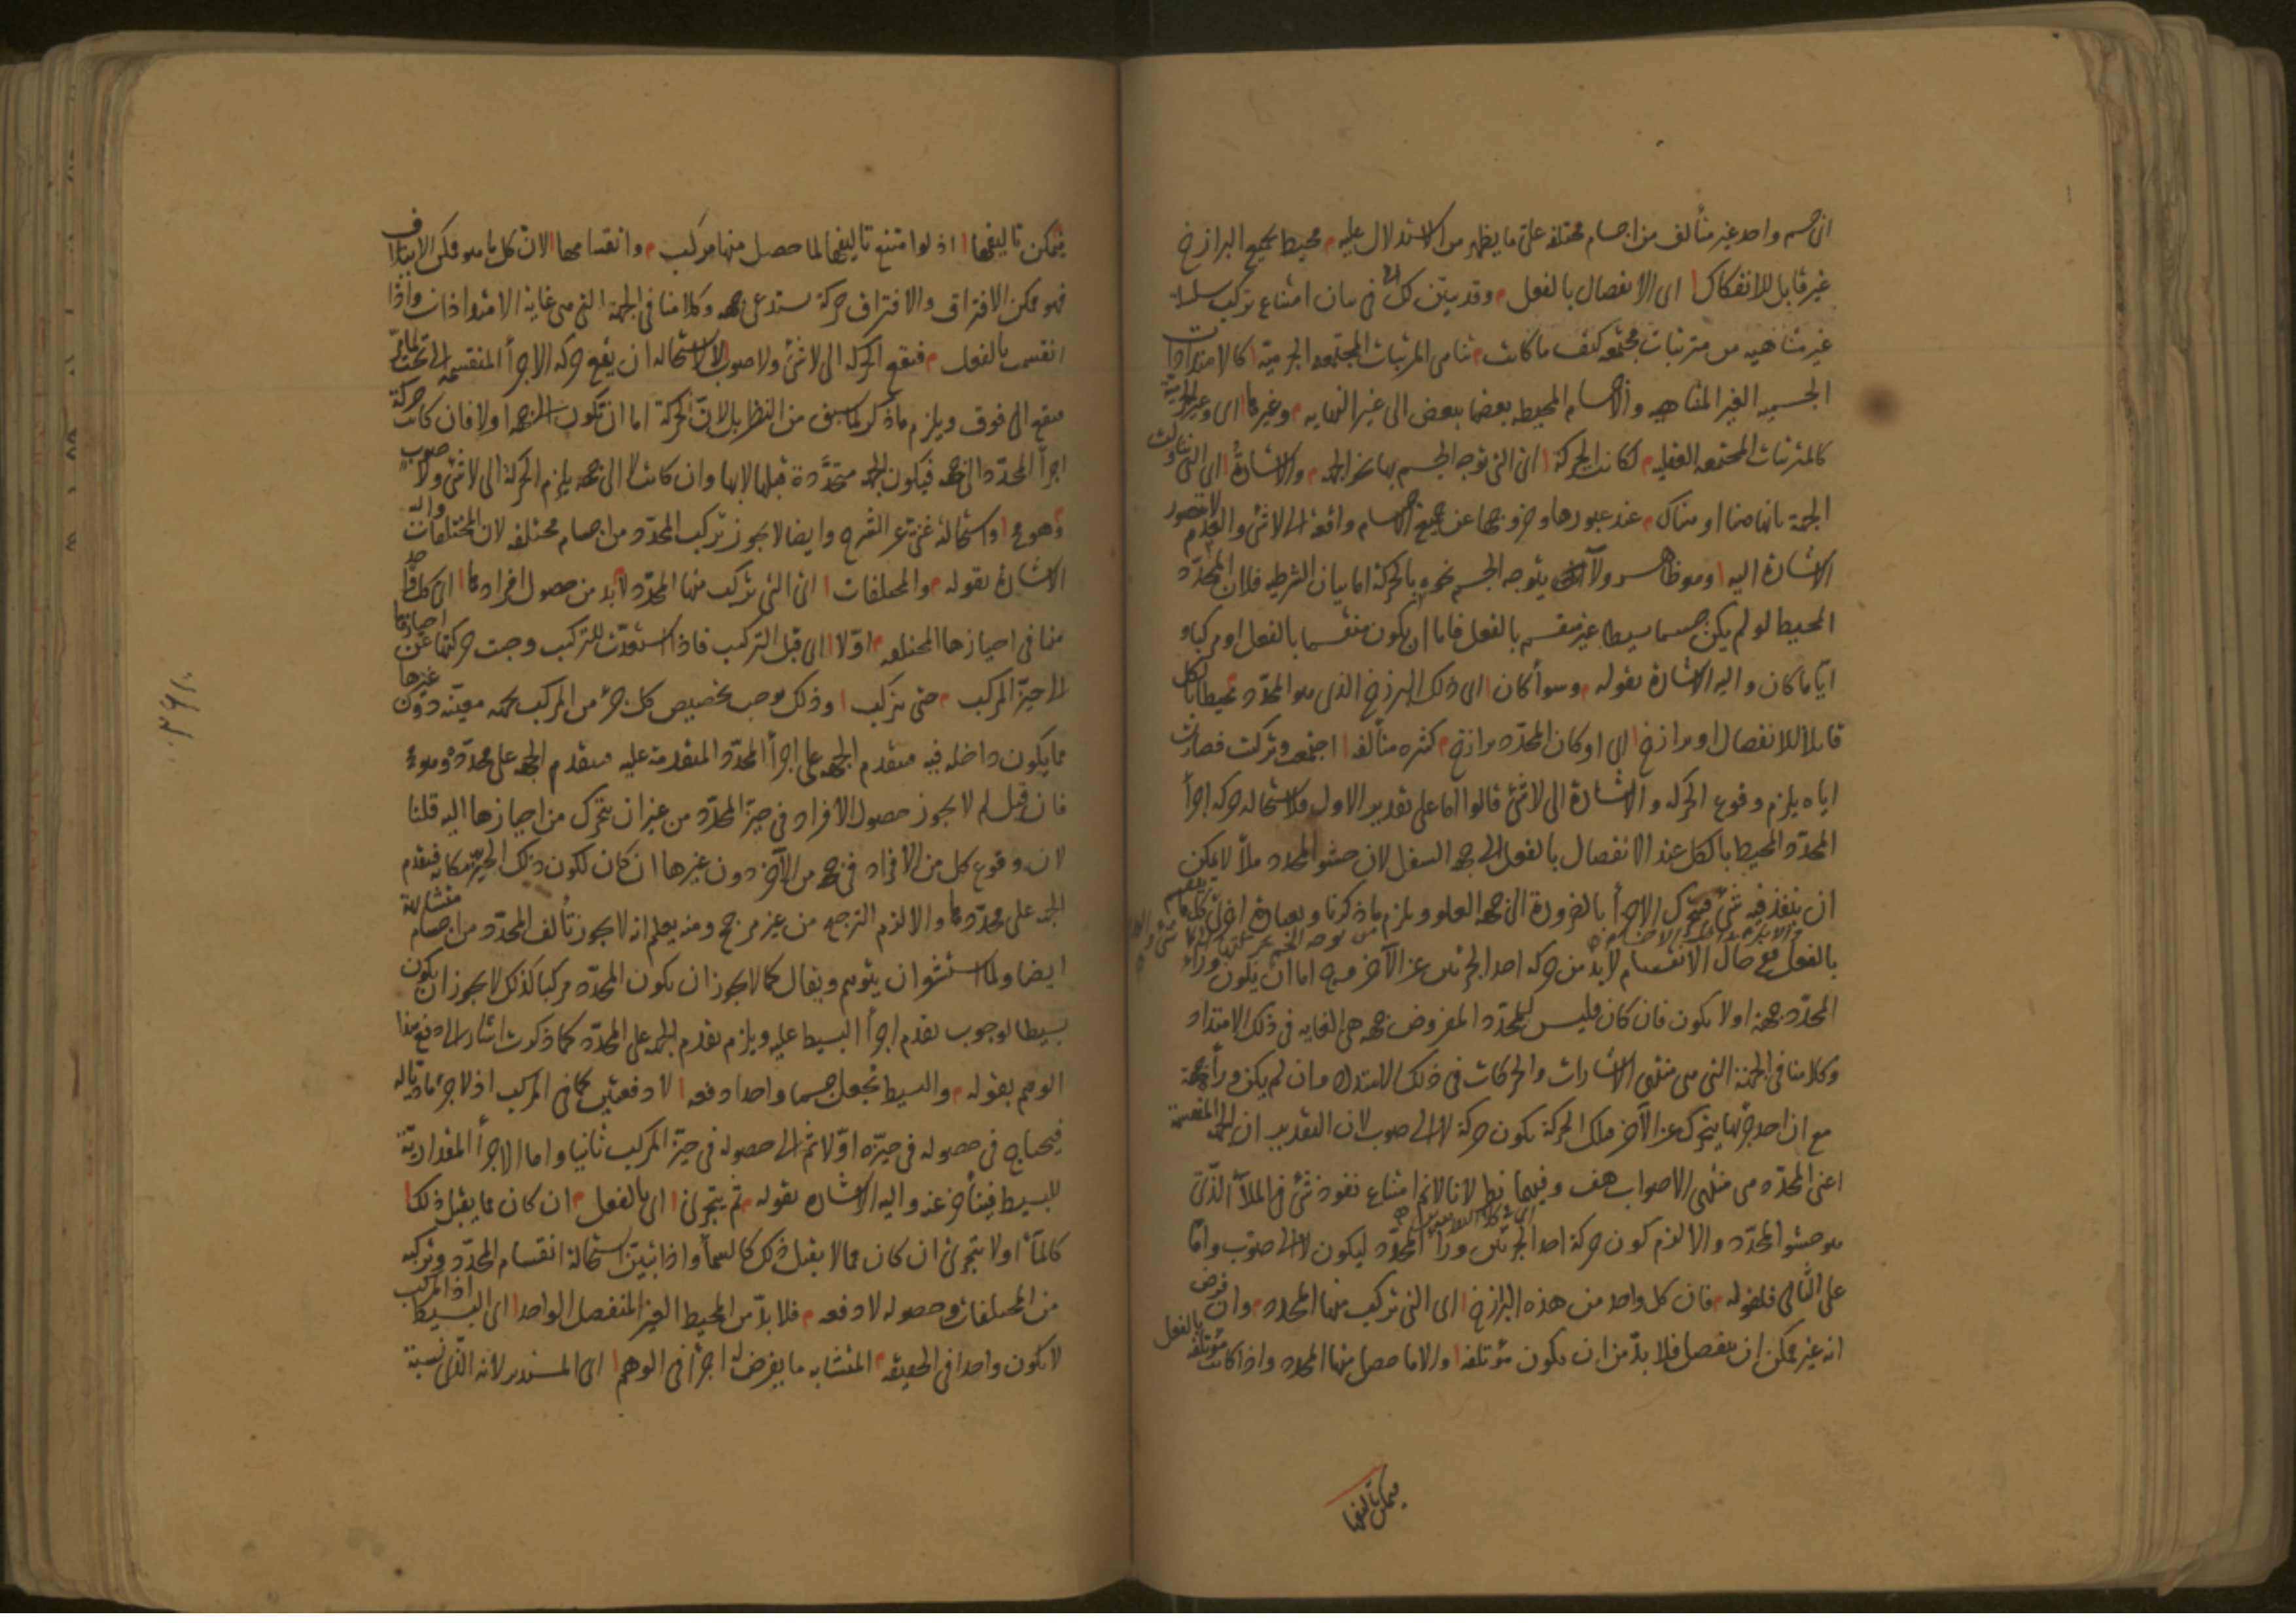 اى جسم واحد غير متألف من اجسام مختلفة على ما يظهر من الاستدلال عليه م محيط بجميع البرازخ
غير قابل للانفكاك ا اى الانفصال بالفعل م وقد بيّن لك فى بيان امتناع تركب سلسلة
غير متناهيه من مترتبات مجتمعه كيف ما كانت م تناهى المرتبات المجتمعه الجرمية ا كالامتدادات
الجسميه الغير المتناهيه والاجسام المحيطه بعضها ببعض الى غير النهايه م وغيرها ا اى وغير الجرمية
كالمترتبات المجتمعه العقليه م لكانت الحركة ا اى التى توجه الجسم بها نحو الجهه م والاشارة ا اى التى تناولت
الجهة بانها هنا او هناك م عند عبورها وخروجها عن جميع الاجسام واقعة الى لا شئ والعدم لا يتصور
الاشارة اليه ا وهو ظاهر ولا يتوجه الجسم نحوه بالحركة اما بيان الشرطيه فلان المحدّد
المحيط لو لم يكن جسما بسيطا غير منقسم بالفعل فاما ان يكون منقسما بالفعل او مركبا و
ايّا ما كان واليه الاشارة بقوله م وسوأ كان ا اى ذلك البرزخ الذى هو المحدّد محيطا بالكل
قابلا للانفصال او برازخ ا اى او كان المحدّد برازخ م كثيره متألفه ا اجتمعت وتركبت فصارت
اياه يلزم وقوع الحركه والاشارة الى لا شئ قالوا اما على تقدير الاول فلاستحاله حركه اجزأ
المحدّد المحيط بالكل عند الانفصال بالفعل الى جهه السفل لان حشو المحدد ملأ لا يمكن
ان ينفذ فيه شئ فيتحرك الاجزأ بالضرورة الى جهه العلو ويلزم ما ذكرنا وبعبارة اخرى كل ما ينقسم
بالفعل فمع حال الانقسام لا بد من حركه احد الجزئين عن الآخر فح اما ان يكون وراء
المحدّد جهه او لا يكون فان كان فليس للمحدّد المفروض جهه هى الغايه فى ذلك الامتداد
وكلامنا فى الجهة التى هى منتهى الاشارات والحركات فى ذلك الامتداد وان لم يكن ورأه جهة
مع ان احد جزئيها يتحرك عن الآخر فتلك الحركة يكون حركة لا الى صوب لان التقدير ان الجهة المنقسمة
اعنى المحدّد هى منتهى الاصواب هف وفيهما نظر لانا لا نم امتناع نفوذ شئ فى الملأ الذى
هو حشو المحدّد والا لزم كون حركة احد الجزئين ورأ المحدّد ليكون لا الى صوب واما
على الثانى فلقوله م فان كل واحد من هذه البرازخ ا اى التى تركب منها المحدد م وان فرض
انه غير ممكن ان ينفصل فلا بدّ من ان يكون مؤتلفه ا والا ما حصل منها المحدد واذا كانت مؤتلفة بالفعل
فيمكن تاليفها
فيمكن تاليفها ا اذ لو امتنع تاليفها لما حصل منها مركب م وانقسامها ا لان كل ما هو ممكن الايتلاف
فهو ممكن الافتراق والافتراق حركة يستدعى جهه وكلامنا فى الجهة التى هى غاية الامتدادات واذا
انقسمت بالفعل م فيقع الحركة الى لا شئ ولا صوب ا لاستحاله ان يقع حركه الاجزأ المنقسمه الى تحت
فيقع الى فوق ويلزم ما ذكر لما سبق من النظر بل لان الحركة اما ان تكون الى جهه او لا فان كانت حركة
اجزأ المحدّد الى جهه فيكون الجهه متحدّدة قبلها لا بها وان كانت لا الى جهه يلزم الحركة الى لا شئ ولا صوب
م وهو مح ا واستحالته غنى عن الشرح وايضا لا يجوز تركب المحدّد من اجسام مختلفه لان المختلفات واليه
الاشارة بقوله م والمختلفات ا اى التى تركب منها المحدّد م لا بد من حصول افرادها ا اى كل واحد
منها فى احيازها المختلفه م اوّلا ا اى قبل التركيب فاذا استعدّت للتركيب وجبت حركتها عن احيازها
الى حيّز المركب م حتى يتركب ا وذلك يوجب تخصيص كل جزء من المركب بجهه معيّنه دون غيرها
مما يكون داخله فيه فيتقدم الجهه على اجزأ المحدّد المتقدمة عليه فيتقدم الجهه على محدّده وهو مح
فان قيل لم لا يجوز حصول الافراد فى حيّز المحدّد من غير ان يتحرك من احيازها اليه قلنا
لان وقوع كل من الافراد فى جهه من الآخر دون غيرها ان كان لكون ذلك الحيّز مكانه فيتقدم
الجهه على محدّدها والا لزم الترجيح من غير مرجح ومنه يعلم انه لا يجوز تألف المحدّد من اجسام متشابهة
ايضا ولما استشعر ان يتوهم ويقال كما لا يجوز ان يكون المحدّد مركبا كذلك لا يجوز ان يكون
بسيطا لوجوب تقدم اجزأ البسيط عليه ويلزم تقدم الجهه على المحدّد كما ذكرت اشار الى دفع هذا
الوهم بقوله م والبسيط يجعل جسما واحدا دفعه ا لا دفعتين كما فى المركب اذ لا جزء ماديا له
فيحتاج فى حصوله فى حيّزه اوّلا ثم الى حصوله فى حيّز المركب ثانيا واما الاجزأ المقداريّة
للبسيط فيتأخر عنه واليه الاشاره بقوله م ثم يتجزى ا اى بالفعل م ان كان مما يقبل ذلك ا
كالمأ او لا يتجزى ان كان مما لا يقبل ذلك كالسمأ واذا تبيّن استحالة انقسام المحدّد وتركبه
من المختلفات وحصوله لا دفعه م فلا بدّ من المحيط الغير المنفصل الواحد ا اى البسيط اذ المركب
لا يكون واحدا فى الحقيقه م المتشابه ما يفرض له اجزأ فى الوهم ا اى المستدير لانه الذى نسبة